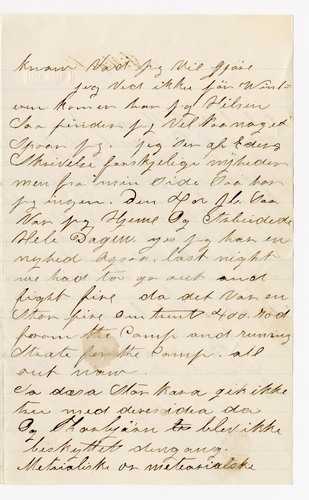 know Vad jeg Vil Gjöre
jeg Ved ikke för Wint-
eren komer har jeg Hilsen
Saa finder jeg Vel Paa noget
Spaar jeg. jeg Ser af Eders
Skrivelse forskjelige nyheder
men fra min Side Saa har
jeg ingen. Den 4or jli Saa
Var jeg Hjeme Og Arbeidede
Hele Dagen. yes jeg har en
nyhed Ogsaa. last night
we had to go out and
fight fire da det Var en
Stor fire Omtrent 400 rod
from the Camp and running
Straite for the Camp. all
out now.
Ja dosa Storkara gik ikke
tru med deres idea da
Og Thorbjörn blev ikke
beskyttet dengang.
Metrialiske or meteorialske